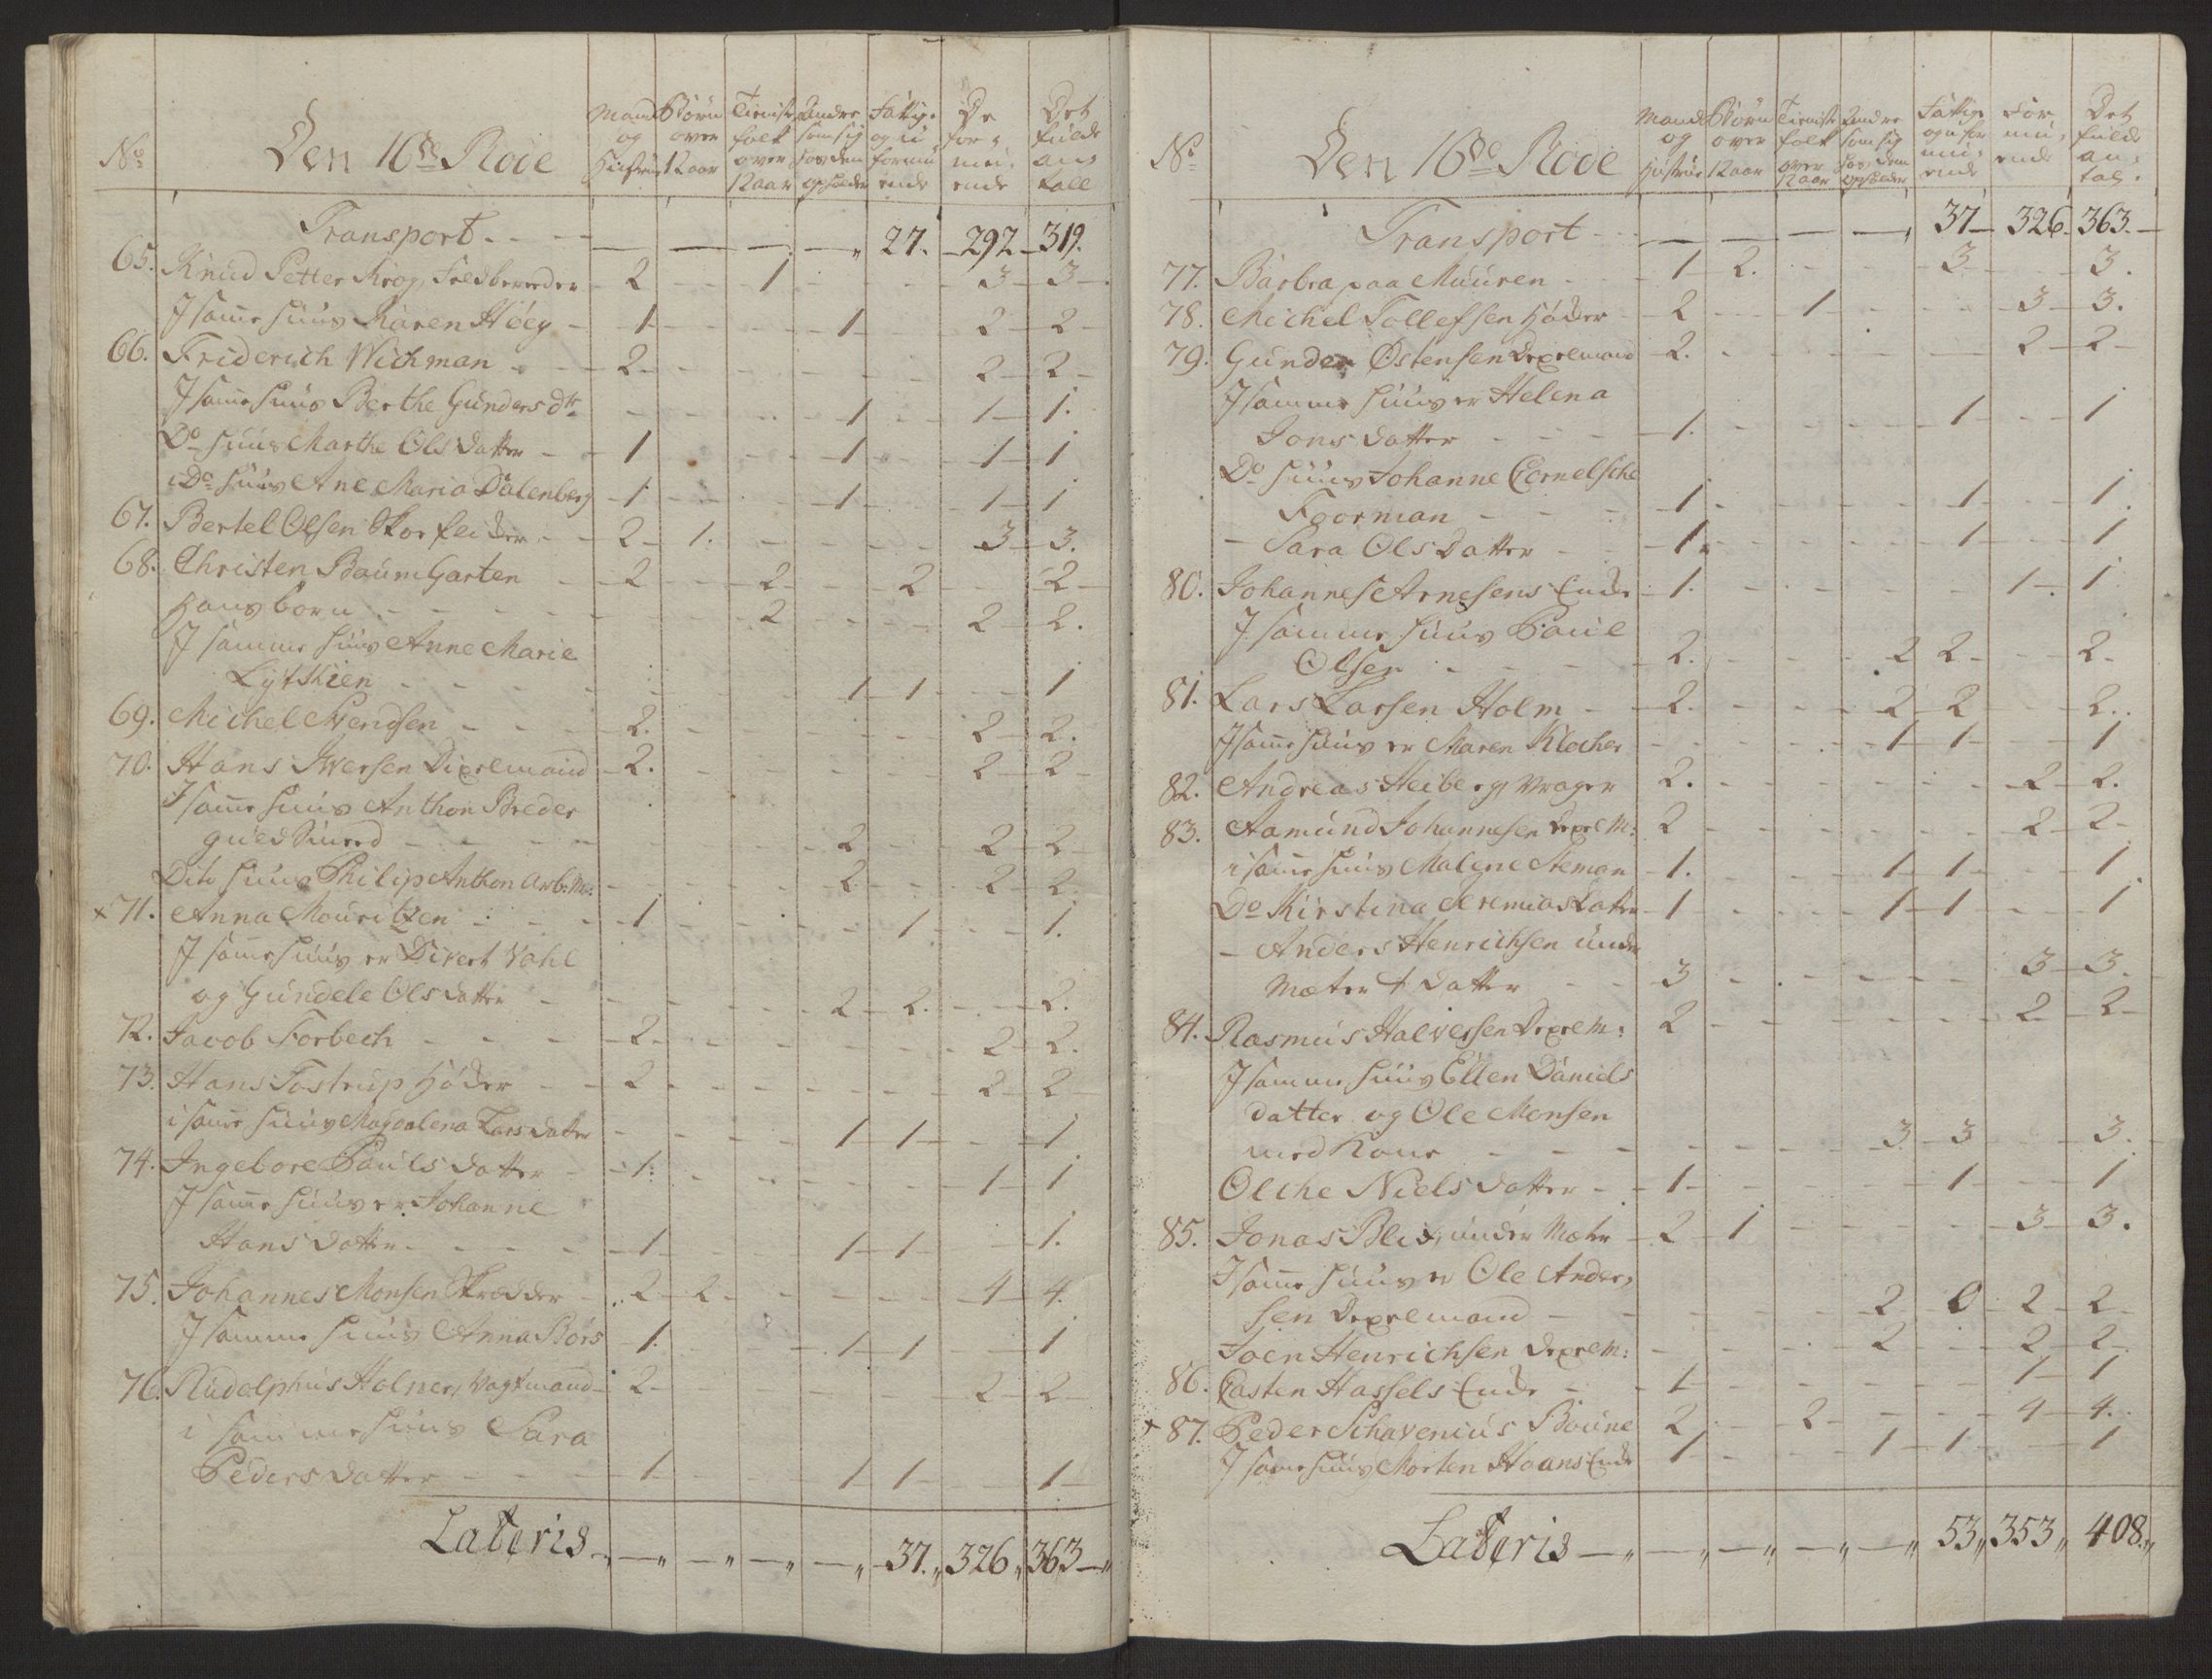 No
Den 16de Rode
Mand og Hustrue
Børn over 12 aar
Tieniste folk over 12 aar
Andre som sig hos dem opholder
Fattige og u formu ende
De for mu ende
Det fulde an tall
Transport - - - 27. - 292 - 319.
65. Knud Petter Krog, Feldbereder - 2 - - 1 - - - 3 - 3
J samme huus Karen Höeg - 1 - - - 1 - - 2 - 2
66. Friderich Wichman - - 2 - - - - - 2 - 2
J samme huus Berthe Gunders dtr - - - - 1 - - 1 - 1.
Do huus Marthe Olsdatter - - 1 - - - 1 - - 1 - 1
i Do huus Ane Maria Dalenberg - 1 - - - 1 - - 1 - 1
67. Bertel Olsen Skorfeider - - 2 - 1. - - - - 3 - 3.
68. Christen BaumGarten - 2 - - 2 - - 2 - - 2
hans børn - - - - 2 - - - 2 - 2.
J samme huus Anne Marie
Lÿtthien - - - - 1 - 1 - - 1
69. Michel Svendsen - - - 2. - - - - - 2 - 2.
70. Hans Iversen Dixelmand - 2. - - - - - 2 - 2
J samme huus Anthon Breder
- - - - 2 - - 2 - 2
Dito huus Philip Anthon Arb: M: - - - - 2 - - 2 - 2.
x 71. Anna Mouritzen - - - 1 - - - - 1 - - 1.
J samme huus er Divert Vahl
og Gundele Olsdatter - - - - 2 - 2. - - 2.
72. Jacob Forbech - - - 2 - - - - - 2 - 2.
73. Hans Tostrup Høder - - 2 - - - - - 2 - 2
i samme huus Magdalena Larsdatter - - - - 1 - 1 - - 1
74. Ingebore Pauls datter - - 1. - - - - - 1 - 1
J samme huus er Johanne
Hans datter - - - 1 - - - 1 - 1 - - 1.
75. Johannes Monsen Skrædder - 2 - 2 - - - - 4 - 4.
J samme huus Anna Börs - 1. - - - 1 - 1 - - 1
76. Rudolphus Holner, Vagtmand - 2 - - - - - 2 - 2
i samme huus Sara
Peders datter - - - 1 - - - 1 - 1 - - 1
Lateris - - - - - 37. 326 363
No
Den 16de Rode
Mand og Hustrue
Børn over 12 aar
Tieniste folk over 12 aar
Andre som sig hos dem opholder
Fattige og u for mu ende
For mu ende
Det fulde an tal.
Transport - - - - 37 - 326. 363.
77. Barbra paa Muuren - - 1 - 2. - - 3 - - 3.
78. Michel Tollefsen Høder - 2 - - 1 - - - 3 - 3.
79. Gunder Østensen Dexelmand - 2. - - - - - 2 - 2
J samme huus er Helena
Jons datter - - - 1. - - - - 1 - - 1
Do huus Johanne Cornelsche
Foorman - - - 1 - - - - 1 - - 1.
- Sara Olsdatter - - 1 - - - - 1 - - 1
80. Johannes Arnesens Enke - 1. - - - - - 1 - 1
J samme huus Paul
Olsen - - - 2. - - - 2 2 - - 2
81. Lars Larsen Holm - - 2. - - - 2 - 2 - - 2.
J samme huus er Maren Klocher - - - - 1 - 1 - - 1
82. Andreas Heiberg, Vrager 2. - - - - - 2 - 2.
83. Aamund Johannesen Dexel M: 2 - - - - - 2 - 2
i samme huus Malene Steman - 1. - - - 1 - 1 - - 1
Do Kirstina Jeremias datter - 1 - - - 1 - 1 - - 1
- Anders Henrichsen under
Mæter & datter - - 3 - - - - - 3 - 3.
84. Rasmus Halversen Dexel M: 2 - - - - - 2 - 2
J samme huus Ellen Daniels
datter og Ole Monsen
med Kone - - - - - - 3 - 3 - - 3.
Olche Niels datter - - 1 - - - - 1 - - 1
85. Jonas Blix, under Mæter - 2 - 1 - - - - 3 - 3.
J samme huus er Ole Ander,
sen Dexelmand - - - - - 2 - 0 - 2 - 2
Joen Henrichsen Dexel M: - - - - 2 - - 2 - 2.
86. Casten Hassels Enke - - 1 - - - - - 1 - 1
x 87. Peder Schavenius Boüne 2 - - 2 - - - 4 - 4.
J samme huus Morten Haans Enke 1 - - - 1 - 1 - - 1
Lateris - - - - - 53, 353, 408.